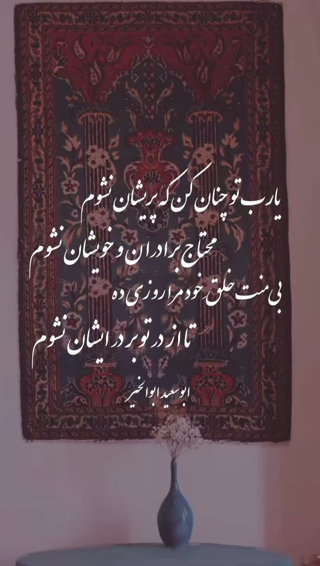 یارب تو چنان کن که پریشان نشوم
محتاج برادران و خویشان نشوم
بی منت خلق خود مرا روزی ده
تا از در تو بر در ایشان نشوم
ابوسعید ابوالخیر